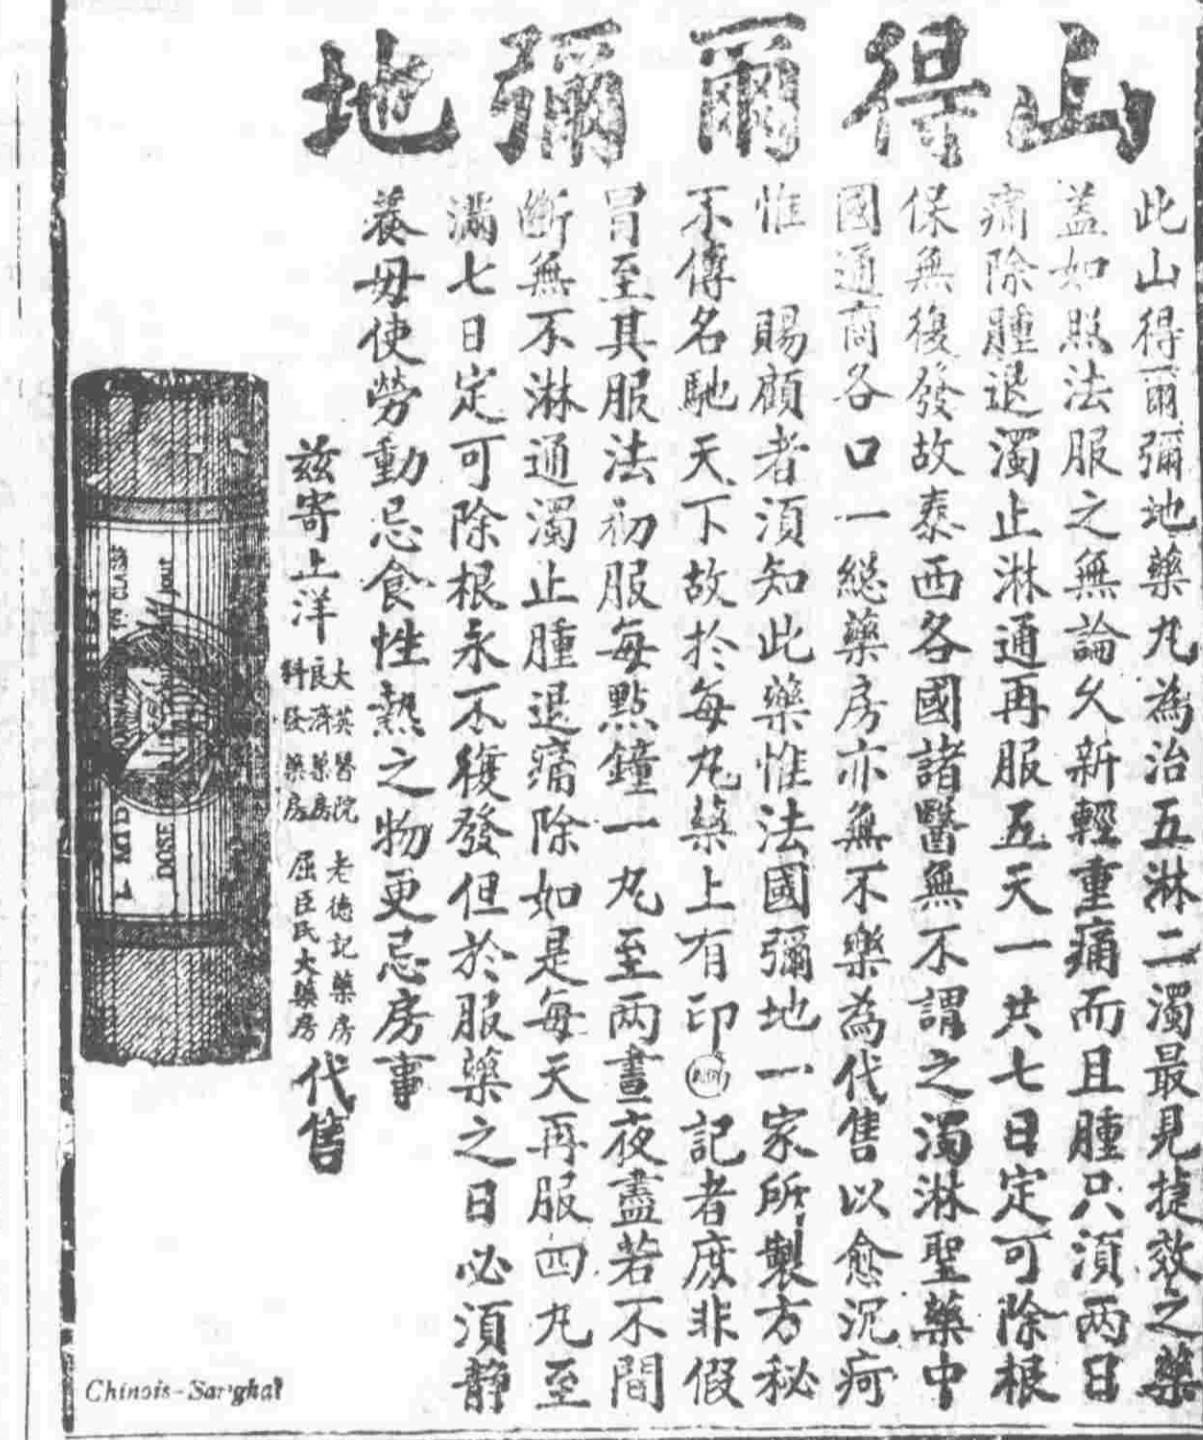 山得爾彌地
此山得爾彌地藥丸為治五淋二濁最見捷效之藥
蓋如照法服之無論久新輕重痛而且腫只須兩日
痛除腫退濁止淋通再服五天一共七日定可除根
保無復發故泰西各國諸醫無不謂之濁淋聖藥中
國通商各口一總藥房亦無不樂為代售以愈沉疴
惟 賜顧者須知此藥惟法國彌地一家所製方秘
不傳名馳天下故於每丸藥上有印記者庶非假
冒至其服法初服每點鐘一丸至兩晝夜盡若不間
斷無不淋通濁止腫退痛除如是每天再服四丸至
滿七日定可除根永不復發但於服藥之日必須靜
養毋使勞動忌食性熱之物更忌房事
茲寄上洋
大英醫院
良濟藥房
科發藥房
老德記藥房
屈臣氏大藥房
代售
DOSE
Chinois-Sanghaï